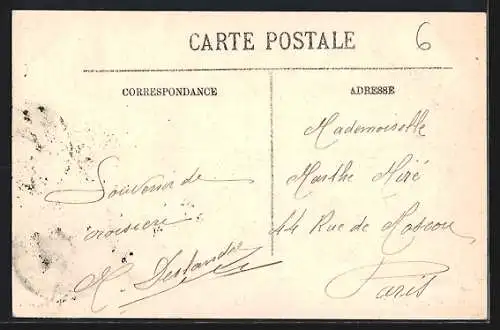 CARTE POSTALE
6
CORRESPONDANCE
Souvenir de
croisière
M. Deslandes
ADRESSE
Mademoiselle
Marthe Miré
44 Rue de Moscou
Paris